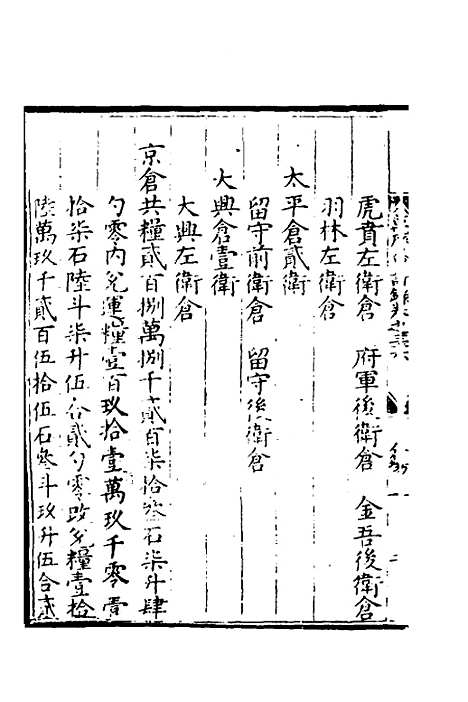 虎賁左衛倉　府軍後衛倉　金吾後衛倉
羽林左衛倉
太平倉貳衛
留守前衛倉　留守後衛倉
大興倉壹衛
大興左衛倉
京倉共糧貳百捌萬捌千貳百柒拾叁石柒升肆
勺零内兌運糧壹百玖拾壹萬玖千零壹
拾柒石陸斗柒升伍合貳勺零改兌糧壹拾
陸萬玖千貳百伍拾伍石叁斗玖升伍合